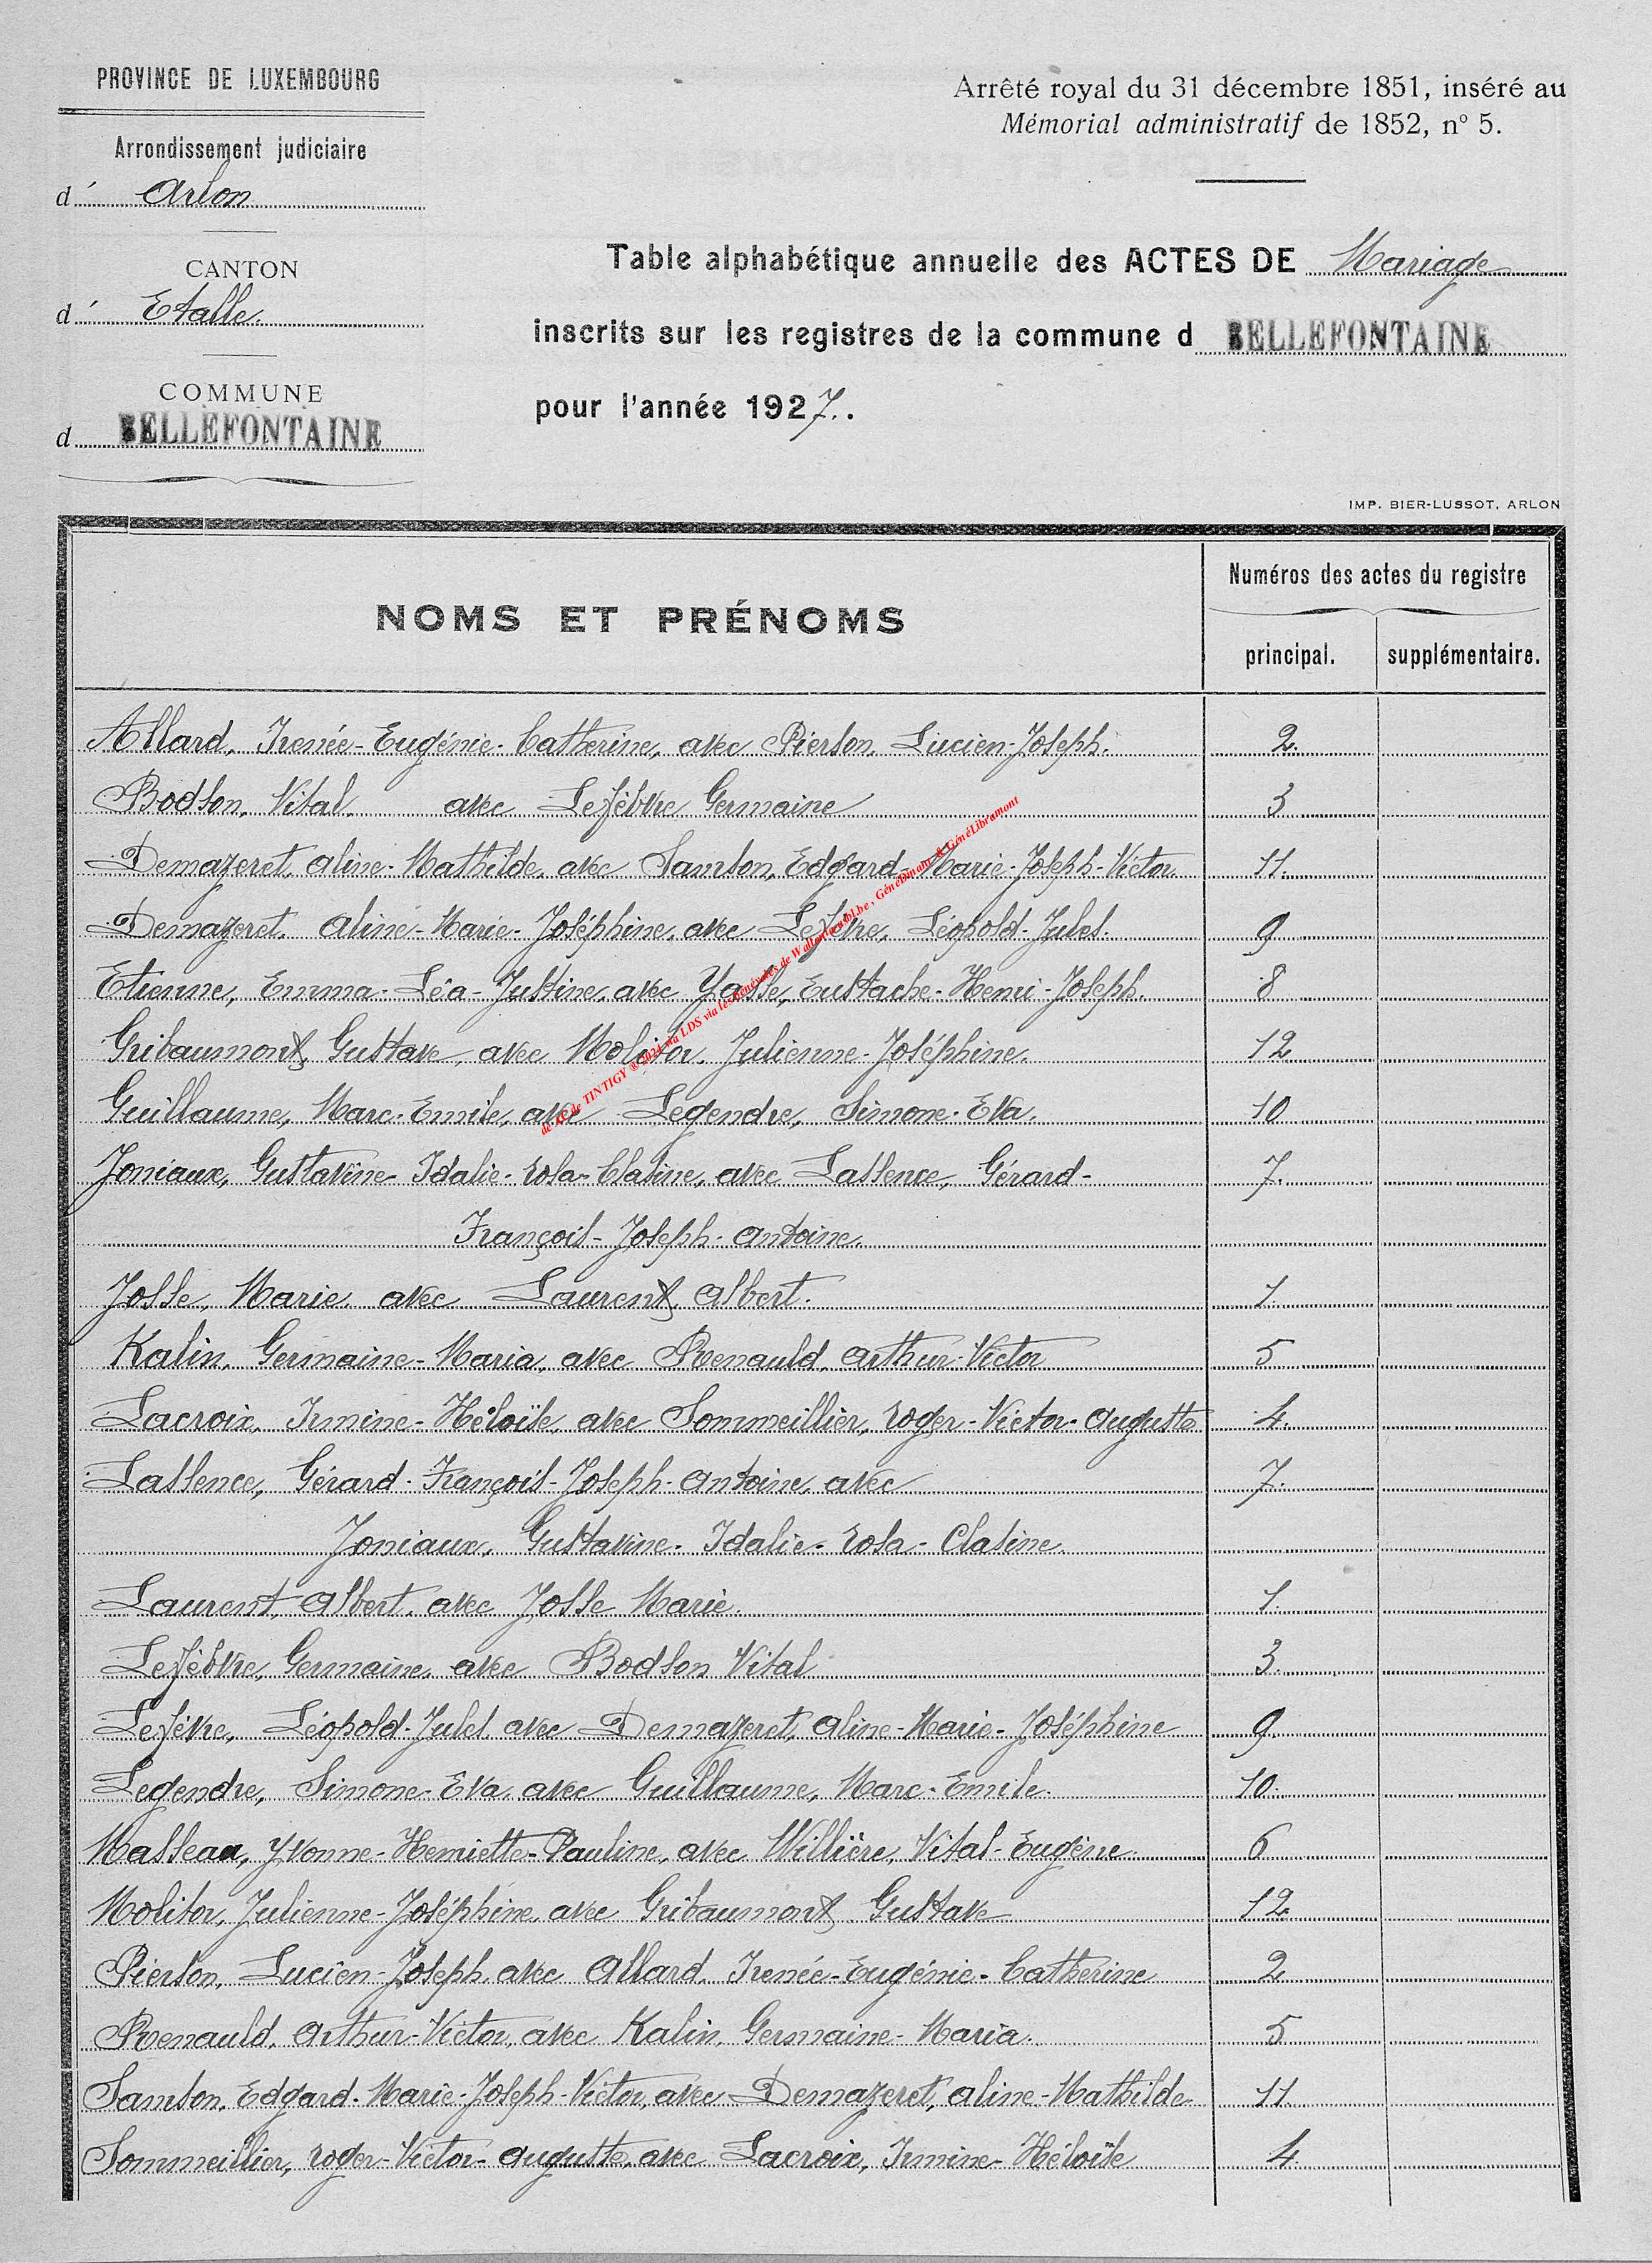 PROVINCE DE LUXEMBOURG
Arrondissement judiciaire
d' Arlon
CANTON
d' Etalle.
COMMUNE
d BELLEFONTAINE
Arrêté royal du 31 décembre 1851, inséré au
Mémorial administratif de 1852, n° 5.
Table alphabétique annuelle des ACTES DE Mariage
inscrits sur les registres de la commune d BELLEFONTAINE
pour l'année 1927.
IMP. BIER-LUSSOT, ARLON
NOMS ET PRÉNOMS
Numéros des actes du registre
principal. supplémentaire.
Allard, Irenée-Eugénie-Catherine, avec Pierson Lucien-Joseph. 2.
Bodson, Vital, avec Lefèbvre Germaine 3
Demazeret, Aline-Mathilde, avec Samson, Edgard-Marie-Joseph-Victor 11.
Demazeret, Aline-Marie-Joséphine, avec Lefèvre, Léopold-Jules. 9
Etienne, Emma-Léa-Justine, avec Yasse, Eustache-Henri-Joseph. 8
Gribaumont, Gustave, avec Molitor, Julienne-Joséphine. 12
Guillaume, Marc-Emile, avec Legendre, Simone-Eva. 10
Joniaux, Gustavine-Idalie-Rosa-Clasine, avec Lassence, Gérard- 7.
François-Joseph-Antoine.
Josse, Marie, avec Laurent, Albert. 1
Kalin, Germaine-Maria, avec Renauld, Arthur-Victor 5
Lacroix, Irmine-Héloïse, avec Sommeillier, Roger-Victor-Auguste 4.
Lassence, Gérard-François-Joseph-Antoine, avec 7.
Joniaux, Gustavine-Idalie-Rosa-Clasine.
Laurent, Albert, avec Josse Marie. 1.
Lefèbvre, Germaine, avec Bodson Vital 3.
Lefèvre, Léopold-Jules, avec Demazeret, Aline-Marie-Joséphine 9.
Legendre, Simone-Eva, avec Guillaume, Marc-Emile. 10.
Masseau, Yvonne-Henriette-Pauline, avec Willière, Vital-Eugène. 6
Molitor, Julienne-Joséphine, avec Gribaumont Gustave 12.
Pierson, Lucien-Joseph, avec Allard, Irenée-Eugénie-Catherine 2
Renauld, Arthur-Victor, avec Kalin, Germaine-Maria. 5
Samson, Edgard-Marie-Joseph-Victor, avec Demazeret, Aline-Mathilde 11.
Sommeillier, Roger-Victor-Auguste, avec Lacroix, Irmine-Héloïse 4.
TINTIGY © 2021 via LDS via les bénévoles de Wallonie , GénéDinant & GénéLibramont